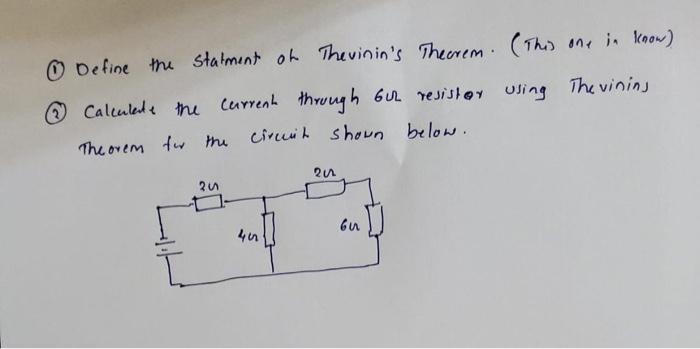 ① Define the Statment oh Thevinin's Theorem. (This one in know)
② Calculede the Current through 6Ω resistor using Thevinins
Theorem for the circuit shown below.
2Ω
2Ω
4Ω
6Ω